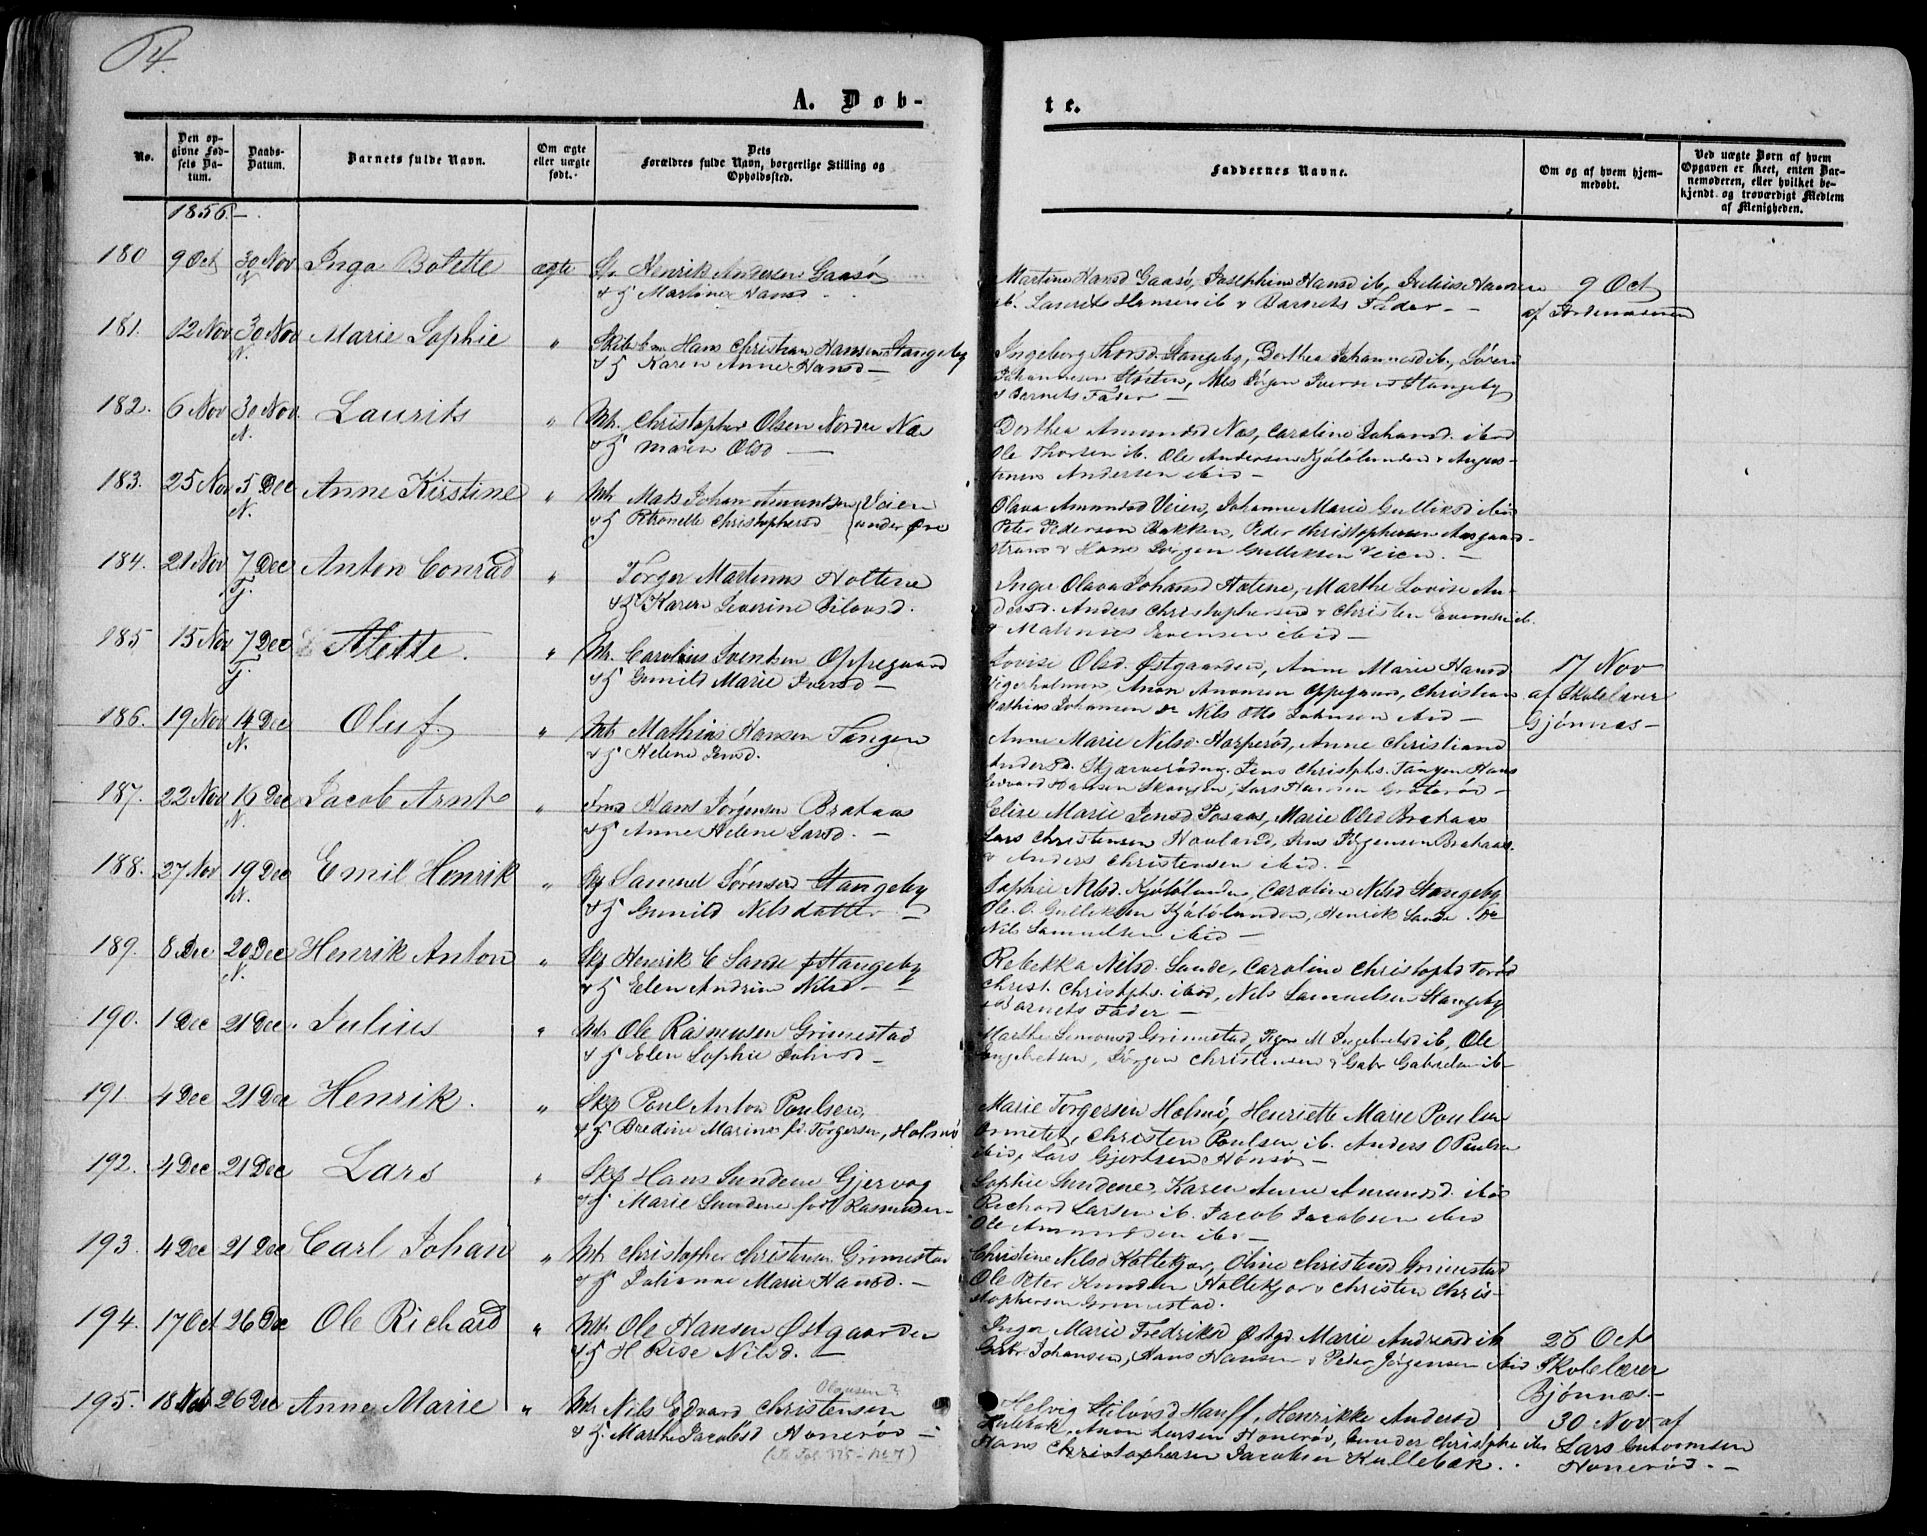 64.
A. Døb-
te.
No.
Den op-
givne Fød-
sels Da-
tum.
Daabs-
Datum.
Barnets fulde Navn.
Om ægte
eller uægte
født.
Dets
Forældres fulde Navn, borgerlige Stilling og
Opholdssted.
Faddernes Navne.
Om og af hvem hjem-
medøbt.
Ved uægte Børn af hvem
Opgaven er skeet, enten Bar-
nemoderen, eller hvilket be-
kjendt og troværdigt Medlem
af Menigheden.
1856.
180 9 Oct 30 Nov Inga Bolette ægte Henrik Andersen Gaasø
N. & H Martine Hansd
Martine Hansd Gaasø, Josephine Hansd ib, Julius Hansen
ib. Laurits Hansen ib & Barnets Fader
9 Oct
af Jordemoderen
181. 12 Nov 30 Nov Marie Sophie " Hans Christian Hansen Stangeby
N. & H Karen Anne Hansd
Ingeborg Thorsd Stangeby, Dorthea Johannesd ib., Søren
Johannesen, Nils Jørgen Iversen Stangeby
& Barnets Fader
182. 6 Nov 30 Nov Laurits " Mtr. Christopher Olsen Nordre Næs
N. & H Maren Olsd
Dorthea Amundsd Næs, Caroline Johansd. ibid
Ole Thorsen ib. Ole Andersen Kjølølunden & Augus-
tinus Andersen ibid
183. 25 Nov 5 Dec Anne Kirstine " Mtr Mats Johan Amundsen Veien
N. & H Petronelle Christophersd under Øre
Olava Amundsd Veien, Johanne Marie Gulliksd ibid
Peter Pedersen Bakken, Peder Christophersen Aasgaard-
strand & Hans Jørgen Gulliksen Veien.
184. 21 Nov 7 Dec Anton Conrad " Torger Martinus Holtene
Tj. & H Karen Severine
Inger Olava Johansd Holtene, Marthe Lovise An-
dersd. Anders Christophersen & Christen Evensen ib.
& Mathias Evensen ibid
185 15 Nov 7 Dec Alette. " Mtr. Carolius Svendsen Oppegaard
Tj. & H Gunild Marie Iversd
Lovise Olsd. Østgaarden, Anne Marie Hansd
Vigerholmen, Anon Anonsen Oppegaard, Christian
Mathias Johansen & Nils Otto Johnsen ibid
17 Nov
af Skolelærer
Bjønnæs
186. 19 Nov 14 Dec Oluf. " Mtr Mathias Hansen Tangen
N. & H Helene Jensd.
Anne Marie Nilsd. Harperød, Anne Christiane
Andersd. Skjærverødeng. Jens Christphs. Tangen Hans
Edvard Hansen Skougen, Lars Hansen Groterød
187. 22 Nov 19 Dec Jacob Arnt " Hans Jørgensen Brataas
N. & H Anne Helene Larsd.
Elise Marie Jensd, Marie Olsd Brataas
Lars Christensen Houland, Jens Jørgensen Brataas.
& Anders Christensen ibid.
188. 27 Nov 19 Dec Emil Henrik " Skp Samuel Sørensen Stangeby
N. & H Gunild Nilsdatter
Sophie Nilsd. Kjølølunden, Caroline Nilsd Stangeby
Ole O. Gulliksen Kjølølunden, Henrik Sande &
Nils Samuelsen ibid
189. 8 Dec 20 Dec Henrik Anton " Skp Henrik C Sande Stangeby
N. & H Elen Andrine Nilsd
Rebekka Nilsd. Sande, Caroline Christophsd
Christ. Christphs. ibid, Nils Samuelsen Stangeby
& Barnets Fader
190. 1 Dec 21 Dec. Julius " Mtr Ole Rasmusen Grimestad
& H Elen Sophie
Marthe Simonsd Grimestad, M Ingebretsd ib, Ole
Ingebretsen, Jørgen Christensen & Gabr Gabrielsen ib
191. 4 Dec 21 Dec Henrik. " Skp Poul Anton Poulsen,
& H Bredine Marine fd. Torgersen, Holmø
Marie Torgersen Holmø, Henriette Marie Poulsen
Ormelet, Christen Poulsen ib. Anders O Poulsen
ibid, Lars Gjertsen Hønsø
192. 4 Dec 21 Dec Lars " Skp Hans Sundene Gjervaag
& H Marie Sundene født Rasmussen
Sophie Sundene, Karen Anne Amundsd. ibid
Richard Larsen ib. Jacob Jacobsen ibid
Ole Amundsen ibid
193. 4 Dec 21 Dec Carl Johan " Mtr Christopher Christensen Grimestad
& H Julianne Marie Hansd.
Christine Nilsd Holtekjær, Oline Christensd Grimestad
Ole Peter Knudsen Holtekjær & Christen Chris-
tophersen Grimestad.
194. 17 Oct 26 Dec Ole Richard " Mtr Ole Hansen Østgaarden
& H Rise Nilsd.
Inger Marie Fredriksd Østgd Marie Andreasd ib
Gabr. Johansen, Hans Hansen & Peder Jørgensen ibid
26 Oct
Skolelærer
Bjønnæs
195. 18 Nov 26 Dec Anne Marie " Mtr Nils Edvard Christensen
Olausen?
& H. Marthe Jacobsd Honerød
(Se Fol 375 - No 7)
Helvig, Henrikke Andersd
Kullebæk, Anon Larsen Honerød, Gunder Christphs ibid
Hans Christophersen Jacobsen Kullebæk.
30 Nov af
Lars Guttormsen
Honerød.